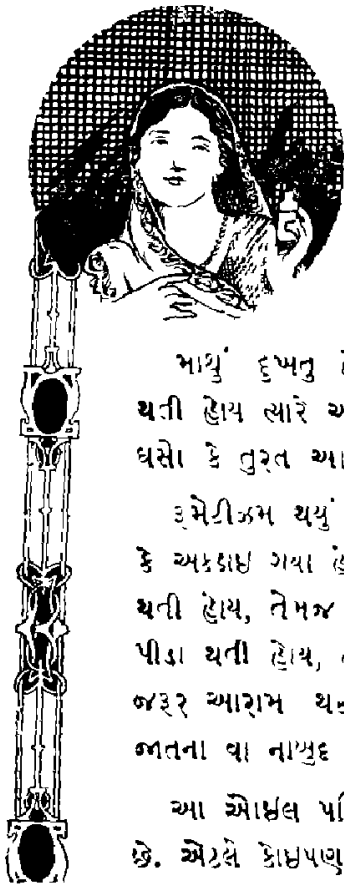 માથું દુખતુ
થતી હોય ત્યારે
ઘસો કે તુરત આ
રૂમેટીઝમ થયું
કે અકડાઇ ગયા
થતી હોય, તેમજ
પીડા થતી હોય,
જરૂર આરામ થ
જાતના વા નાબુદ
આ ઓઇલ પ
છે. એટલે કોઇપણ